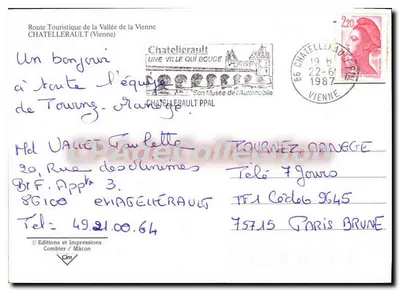 Route Touristique de la Vallée de la Vienne
CHATELLERAULT (Vienne)
Un bonjour
à toute l'équipe
de Tournez-Manège.
Chatellerault
UNE VILLE QUI BOUGE
Son Musée de l'Automobile
CHATELLERAULT PPAL
86 CHATELLERAULT PPAL
19 H
22-6
1987
VIENNE
2,20
Md VALLET Paulette
20, Rue des Minimes
Bt F. Appt 3.
86100 CHATELLERAULT
Tel = 49.21.00.64
TOURNEZ MANEGE
Télé 7 Jours
TF1 Cédex 9645
75715 PARIS BRUNE
© Editions et Impressions
Combier / Mâcon
Cim